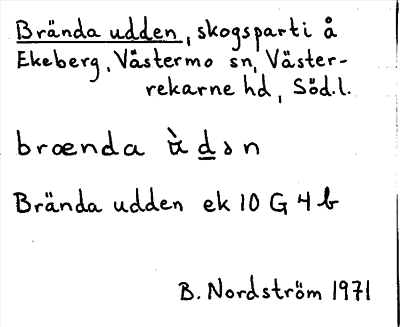 Brända udden, skogsparti å
Ekeberg, Västermo sn, Väster-
rekarne hd, Söd.l.
brœnda ùdən
Brända udden ek 10 G 4 b
B. Nordström 1971